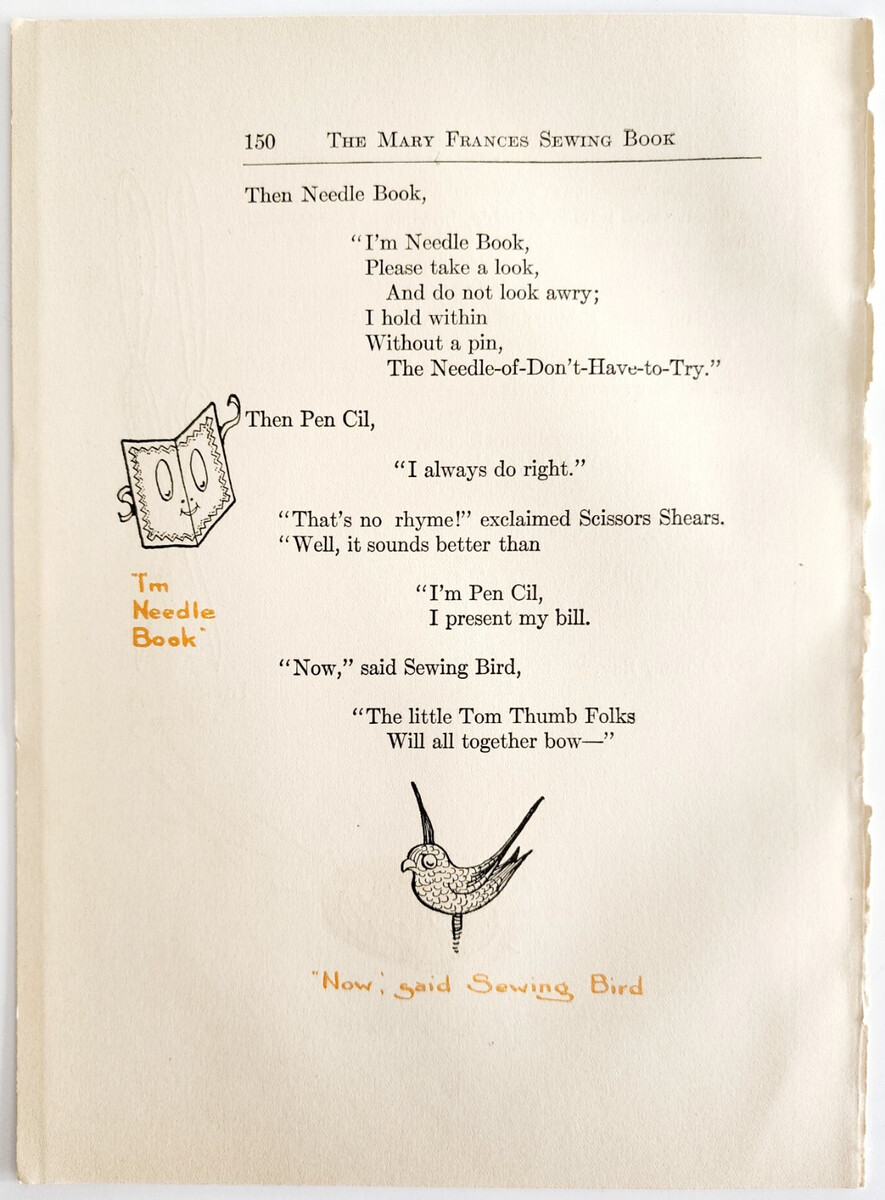 150 The Mary Frances Sewing Book
Then Needle Book,
“I’m Needle Book,
Please take a look,
And do not look awry;
I hold within
Without a pin,
The Needle-of-Don’t-Have-to-Try.”
Then Pen Cil,
“I always do right.”
“That’s no rhyme!” exclaimed Scissors Shears.
“Well, it sounds better than
“I’m Pen Cil,
I present my bill.
“Now,” said Sewing Bird,
“The little Tom Thumb Folks
Will all together bow—”
"I'm
Needle
Book"
"Now", said Sewing Bird